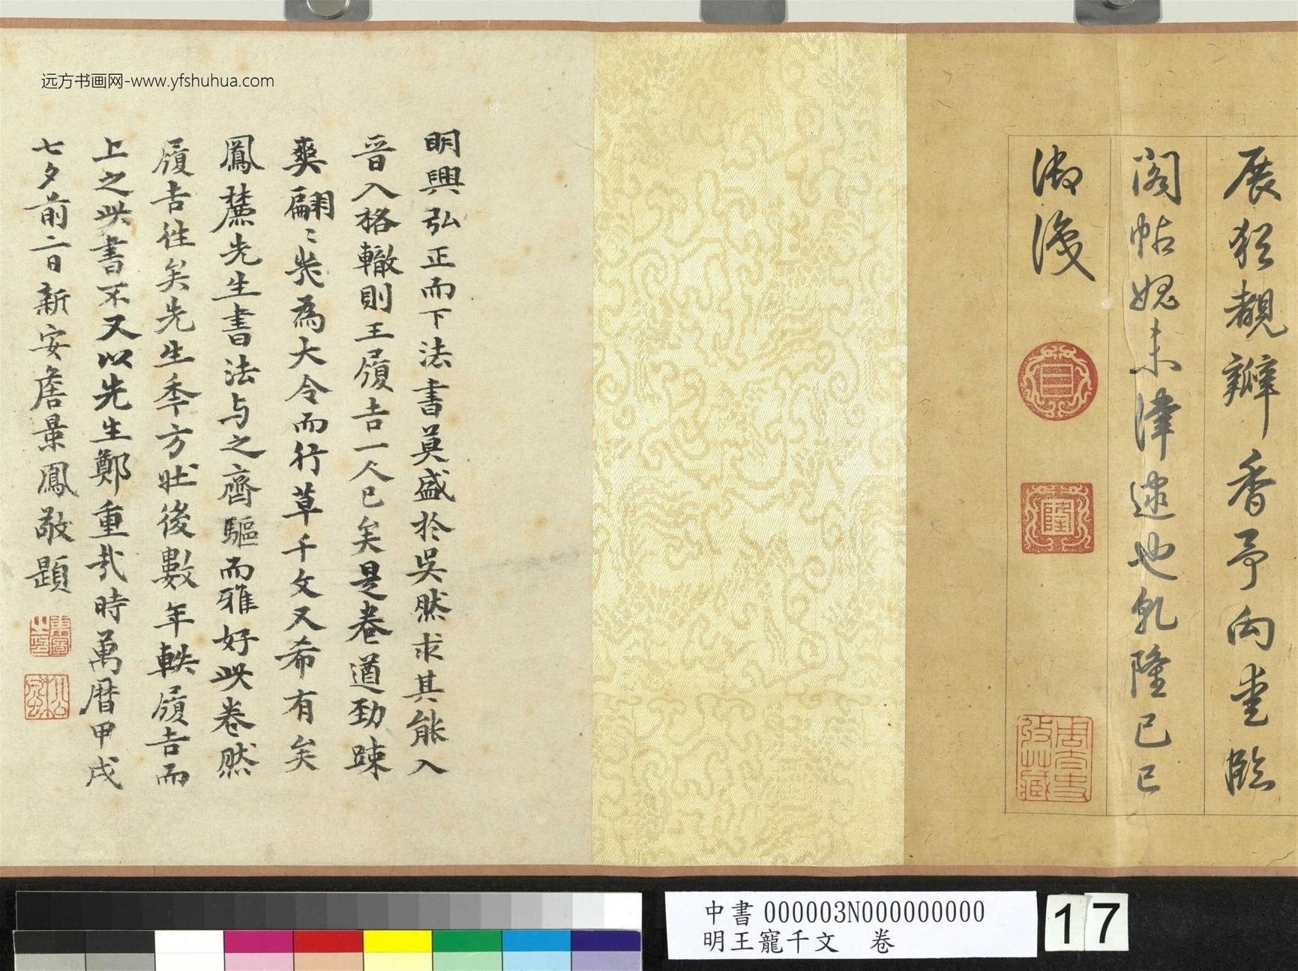 远方书画网-www.yfshuhua.com
展猊觏瓣香予向臺臨
閣帖媿未津逮也乾隆己巳
御識
明興弘正而下法書莫盛於吳然求其能入
晉入格轍則王履吉一人已矣是卷遒勁踈
爽翩〻失為大令而行草千文又希有矣
鳳麓先生書法与之齊驅而雅好此卷然
履吉往矣先生季方壯後數年軼履吉而
上之此書不又以先生鄭重哉時萬曆甲戌
七夕前二日新安詹景鳳敬題
中書 000003N000000000
明王寵千文 卷
17